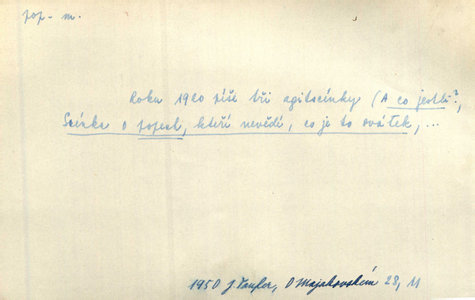 pop - m.
Roku 1920 píše tři agitscénky (A co jestli?,
Scénka o popech, kteří nevědí, co je to svátek, ...
1950 J. Taufer, O Majakovském 28, 11